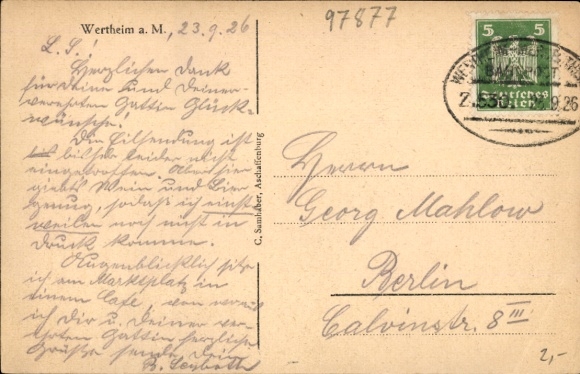 97877
Wertheim a. M., 23.9.26
L. S.!
Herzlichen Dank
für Deine und Deiner
verehrten Gattin Glück-
wünsche!
Die Eilsendung ist
bisher leider nicht
eingetroffen. Aber hier
giebts Wein und Bier
genug, sodaß ich einst
weilen noch nicht in
Druck komme.
Augenblicklich sitze
ich am Marktplatz in
einem Café, von wo aus
ich Dir u. Deiner ver-
ehrten Gattin herzliche
Grüße sende. Dein
C. Samhaber, Aschaffenburg
5 5
Deutsches
Reich
BAHNPOST
Z.536
9.26
Herrn
Georg Mahlow
Berlin
Calvinstr. 8 III
2,-